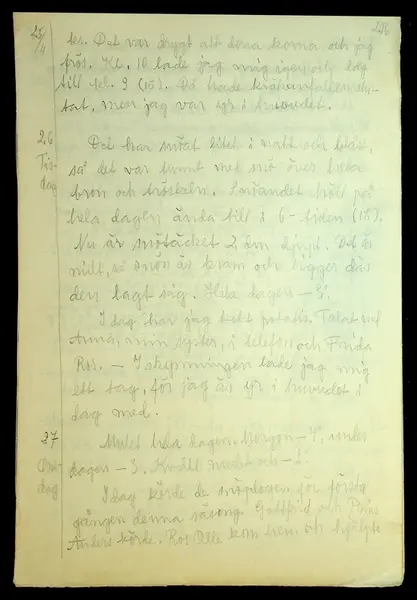 25/4
ks. Det var drygt att denna komma och jag
frös. Kl. 10 lade jag mig igen och låg
till kl. 3 (15). Då hade kräkningarna
men jag var yr i huvudet.
26
Tis-
dag
Det har snöat litet i natt och blåst,
så det var tunnt med snö över hela
bron och tröskeln. Snöandet höll på
hela dagen ända till i 6-tiden (18).
Nu är snötäcket 2 dm djupt. Det är
milt, så snön är kram och ligger där
den lagt sig. Hela dagen -
I dag har jag kokt potatis. Talat med
Anna, min syster, i telefon och Frida
Ros. - I skymningen lade jag mig
ett tag, för jag är yr i huvudet i
dag med.
27
Ons-
dag
Mulet hela dagen. Morgon - under
dagen - 3. Kväll
I dag körde de snöplogen för första
gången denna säsong. Gottfrid och
Anders körde. Ros Olle kom hem och hjälpte